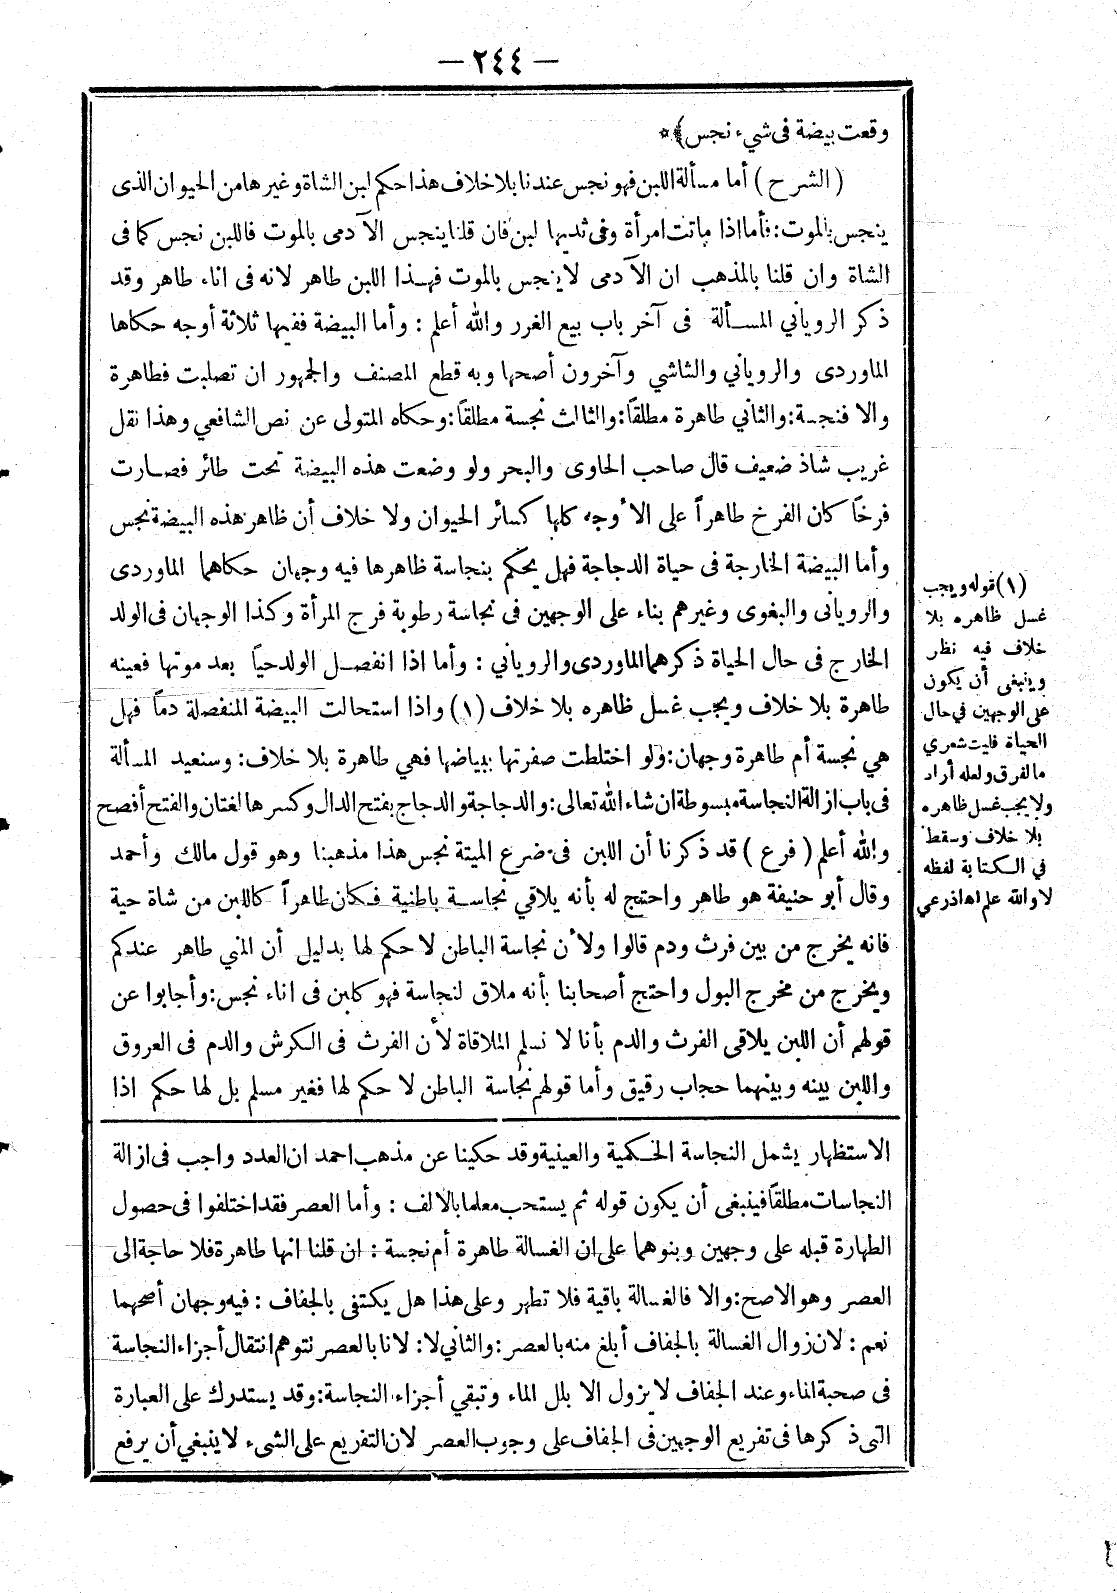 — ٢٤٤ —
وقعت بيضة فى شىء نجس ﴾*
( الشرح ) أما مسألة اللبن فهو نجس عندنا بلا خلاف هذا حكم لبن الشاة وغيرها من الحيوان الذى
ينجس بالموت : فأما اذا ماتت امرأة وفى ثديها لبن فان قلنا ينجس الآدمى بالموت فاللبن نجس كما فى
الشاة وان قلنا بالمذهب ان الآدمى لا ينجس بالموت فهذا اللبن طاهر لانه فى اناء طاهر وقد
ذكر الرويانى المسألة فى آخر باب بيع الغرر والله أعلم : وأما البيضة ففيها ثلاثة أوجه حكاها
الماوردى والرويانى والشاشي وآخرون أصحها وبه قطع المصنف والجمهور ان تصلبت فطاهرة
والا فنجسة : والثاني طاهرة مطلقاً : والثالث نجسة مطلقاً : وحكاه المتولى عن نص الشافعي وهذا نقل
غريب شاذ ضعيف قال صاحب الحاوى والبحر ولو وضعت هذه البيضة تحت طائر فصارت
فرخاً كان الفرخ طاهراً على الأوجه كلها كسائر الحيوان ولا خلاف أن ظاهر هذه البيضة نجس
وأما البيضة الخارجة فى حياة الدجاجة فهل يحكم بنجاسة ظاهرها فيه وجهان حكاهما الماوردى
والرويانى والبغوى وغيرهم بناء على الوجهين فى نجاسة رطوبة فرج المرأة وكذا الوجهان فى الولد
الخارج فى حال الحياة ذكرهما الماوردى والرويانى : وأما اذا انفصل الولد حياً بعد موتها فعينه
طاهرة بلا خلاف ويجب غسل ظاهره بلا خلاف (١) واذا استحالت البيضة المنفصلة دماً فهل
هي نجسة أم طاهرة وجهان : ولو اختلطت صفرتها ببياضها فهي طاهرة بلا خلاف : وسنعيد المسألة
فى باب ازالة النجاسة مبسوطة ان شاء الله تعالى : والدجاجة والدجاج بفتح الدال وكسرها لغتان والفتح أفصح
والله أعلم ( فرع ) قد ذكرنا أن اللبن فى ضرع الميتة نجس هذا مذهبنا وهو قول مالك وأحمد
وقال أبو حنيفة هو طاهر واحتج له بأنه يلاقي نجاسة باطنية فكان طاهراً كاللبن من شاة حية
فانه يخرج من بين فرث ودم قالوا ولأن نجاسة الباطن لا حكم لها بدليل أن المني طاهر عندكم
ويخرج من مخرج البول واحتج أصحابنا بأنه ملاق لنجاسة فهو كلبن فى اناء نجس : وأجابوا عن
قولهم أن اللبن يلاقى الفرث والدم بأنا لا نسلم الملاقاة لأن الفرث فى الكرش والدم فى العروق
واللبن بينه وبينهما حجاب رقيق وأما قولهم نجاسة الباطن لا حكم لها فغير مسلم بل لها حكم اذا
(١) قوله ويجب
غسل ظاهره بلا
خلاف فيه نظر
وينبغى أن يكون
على الوجهين في حال
الحياة فليت شعري
ما الفرق ولعله أراد
ولا يجب غسل ظاهره
بلا خلاف وسقط
في الكتابة لفظه
لا والله علم اه اذرعي
الاستظهار يشمل النجاسة الحكمية والعينية وقد حكينا عن مذهب احمد ان العدد واجب فى ازالة
النجاسات مطلقاً فينبغى أن يكون قوله ثم يستحب معلما بالالف : وأما العصر فقد اختلفوا فى حصول
الطهارة قبله على وجهين وبنوهما على ان الغسالة طاهرة أم نجسة : ان قلنا انها طاهرة فلا حاجة الى
العصر وهو الاصح : والا فالغسالة باقية فلا تطهر وعلى هذا هل يكتفى بالجفاف : فيه وجهان أصحهما
نعم : لان زوال الغسالة بالجفاف أبلغ منه بالعصر : والثاني لا : لانا بالعصر نتوهم انتقال أجزاء النجاسة
فى صحبة الماء وعند الجفاف لا يزول الا بلل الماء وتبقي أجزاء النجاسة : وقد يستدرك على العبارة
التى ذكرها فى تفريع الوجهين فى الجفاف على وجوب العصر لان التفريع على الشىء لا ينبغي أن يرفع